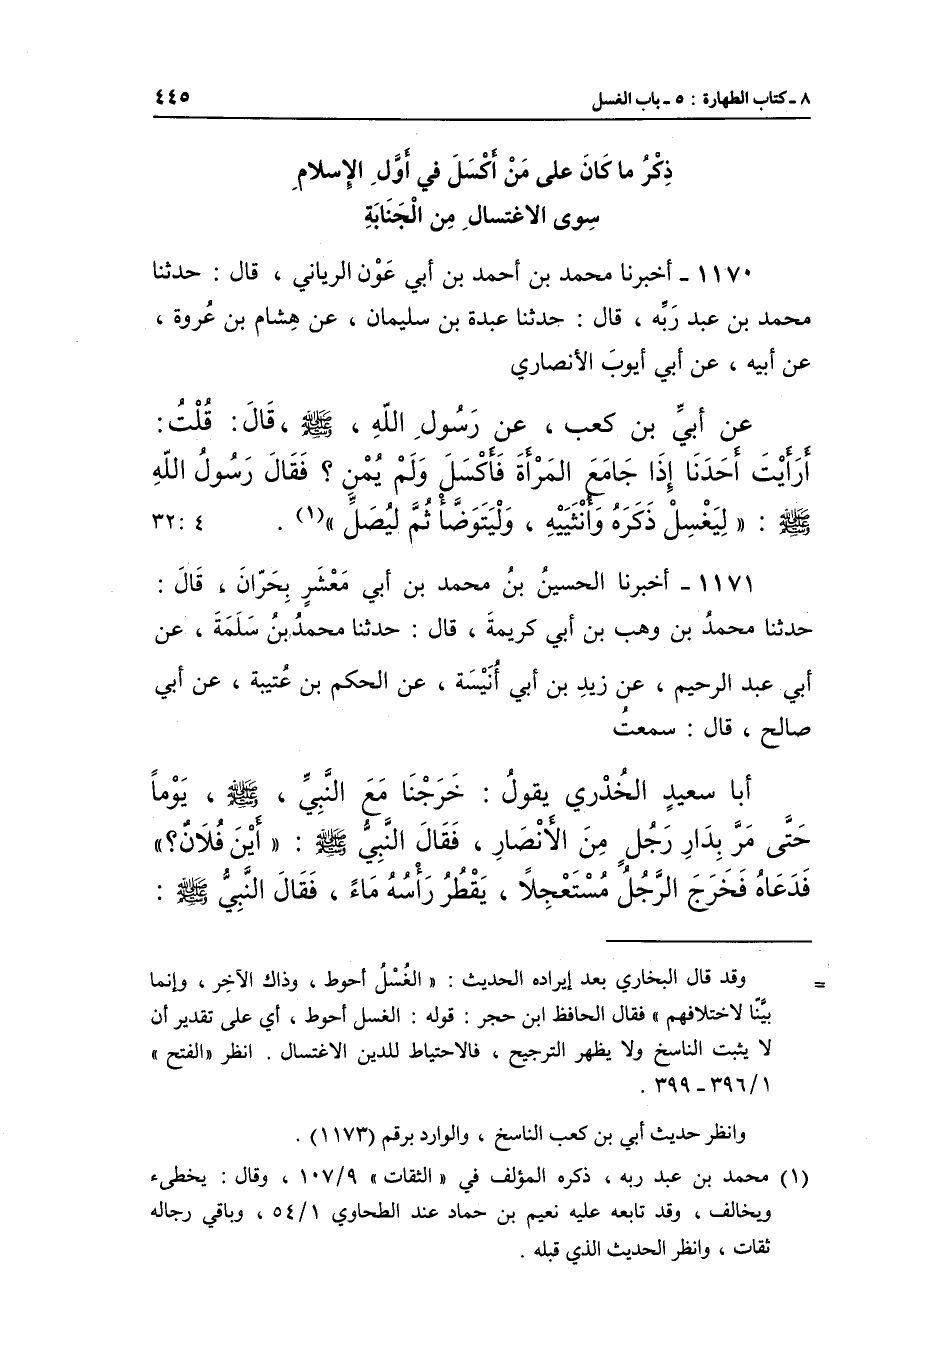 ٨ ـ كتاب الطهارة : ٥ ـ باب الغسل ٤٤٥
ذِكْرُ ما كَانَ على مَنْ أَكْسَلَ في أَوَّلِ الإِسلامِ
سِوى الاغتسالِ مِن الْجَنَابَةِ
١١٧٠ ـ أخبرنا محمد بن أحمد بن أبي عَوْن الرياني ، قال : حدثنا
محمد بن عبد رَبِّه ، قال : حدثنا عبدة بن سليمان ، عن هِشام بن عُروة ،
عن أبيه ، عن أبي أيوبَ الأنصاري
عن أبيِّ بن كعب ، عن رَسُولِ اللّهِ ، ﷺ ، قَالَ : قُلْتُ :
أَرَأَيْتَ أَحَدَنَا إِذَا جَامَعَ المَرْأَةَ فَأَكْسَلَ وَلَمْ يُمْنِ ؟ فَقَالَ رَسُولُ اللّهِ
ﷺ : « لِيَغْسِلْ ذَكَرَهُ وَأُنْثَيَيْهِ ، وَلْيَتَوَضَّأْ ثُمَّ لْيُصَلِّ »(١) . ٤ :٣٢
١١٧١ ـ أخبرنا الحسينُ بنُ محمد بن أبي مَعْشَرٍ بِحَرّانَ ، قَالَ :
حدثنا محمدُ بن وهب بن أبي كريمةَ ، قال : حدثنا محمدُ بنُ سَلَمَةَ ، عن
أبي عبد الرحيم ، عن زيدِ بن أبي أُنَيْسَة ، عن الحكم بن عُتيبة ، عن أبي
صالح ، قال : سمعتُ
أبا سعيدٍ الخُدْري يقولُ : خَرَجْنَا مَعَ النَّبِيِّ ، ﷺ ، يَوْماً
حَتَّى مَرَّ بِدَارِ رَجُلٍ مِنَ الأَنْصَارِ ، فَقَالَ النَّبِيُّ ﷺ : « أَيْنَ فُلَانٌ؟»
فَدَعَاهُ فَخَرَجَ الرَّجُلُ مُسْتَعْجِلاً ، يَقْطُرُ رَأْسُهُ مَاءً ، فَقَالَ النَّبِيُّ ﷺ :
= وقد قال البخاري بعد إيراده الحديث : « الغُسْلُ أحوط ، وذاك الآخِر ، وإنما
بيَّنّا لاختلافهم » فقال الحافظ ابن حجر : قوله : الغسل أحوط ، أي على تقدير أن
لا يثبت الناسخ ولا يظهر الترجيح ، فالاحتياط للدين الاغتسال . انظر «الفتح »
٣٩٦/١ ـ ٣٩٩ .
وانظر حديث أبي بن كعب الناسخ ، والوارد برقم (١١٧٣) .
(١) محمد بن عبد ربه ، ذكره المؤلف في « الثقات » ١٠٧/٩ ، وقال : يخطىء
ويخالف ، وقد تابعه عليه نعيم بن حماد عند الطحاوي ٥٤/١ ، وباقي رجاله
ثقات ، وانظر الحديث الذي قبله .